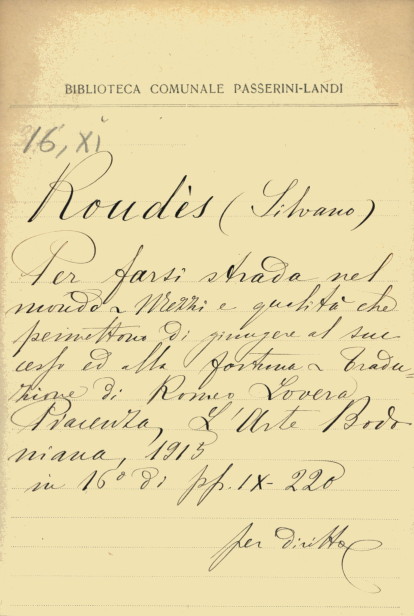 BIBLIOTECA COMUNALE PASSERINI-LANDI
16, XI
Roudès (Silvano)
Per farsi strada nel
mondo ~ Mezzi e qualità che
permettono di giungere al suc
cesso ed alla fortuna ~ Tradu-
zione di Romeo Lovera
Piacenza, L'Arte Bodo
niana, 1915
in 16° di pp. IX-220
per diritto